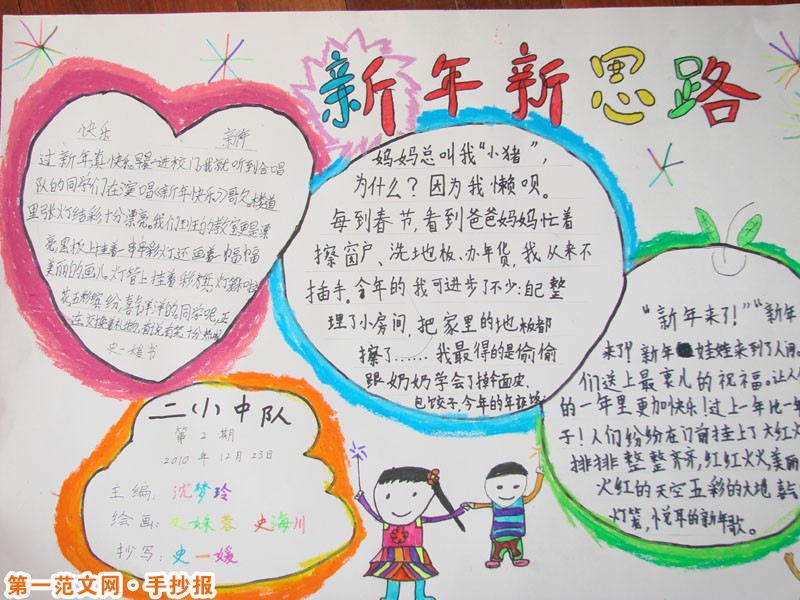 新年新思路
快乐 新年
过新年真快乐!早晨一进校门我就听到合唱
队的同学们在演唱《新年快乐》哥欠。楼道
里张灯结彩十分漂亮。我们班的教室更是漂
亮黑板上挂着一串串彩灯还画着一幅幅
美丽的画儿,灯管上挂着彩旗灯笼
五彩缤纷喜气洋洋的同学呢,正
在交换着礼物,
史一媛书
妈妈总叫我“小猪”,
为什么?因为我懒呗。
每到春节,看到爸爸妈妈忙着
擦窗户、洗地板、办年货,我从来不
插手。今年的我可进步了不少:自己整
理了小房间,把家里的地板都
擦了……我最得的是偷偷
跟奶奶学会了擀个面皮、
包饺子,今年的年夜饭
“新年来了!”“新年
来了!”新年娃娃来到了人间。
们送上最衷儿的祝福。让人
的一年里更加快乐!过上一年比一年
子!人们纷纷在门前挂上了大红火
排排整整齐齐,红红火火,美丽
火红的天空五彩的大地
灯笼,悦耳的新年歌。
二小中队
第2期
2010年12月23日
主编:沈梦玲
绘画:史姝蓉 史海川
抄写:史一媛
第一范文网·手抄报